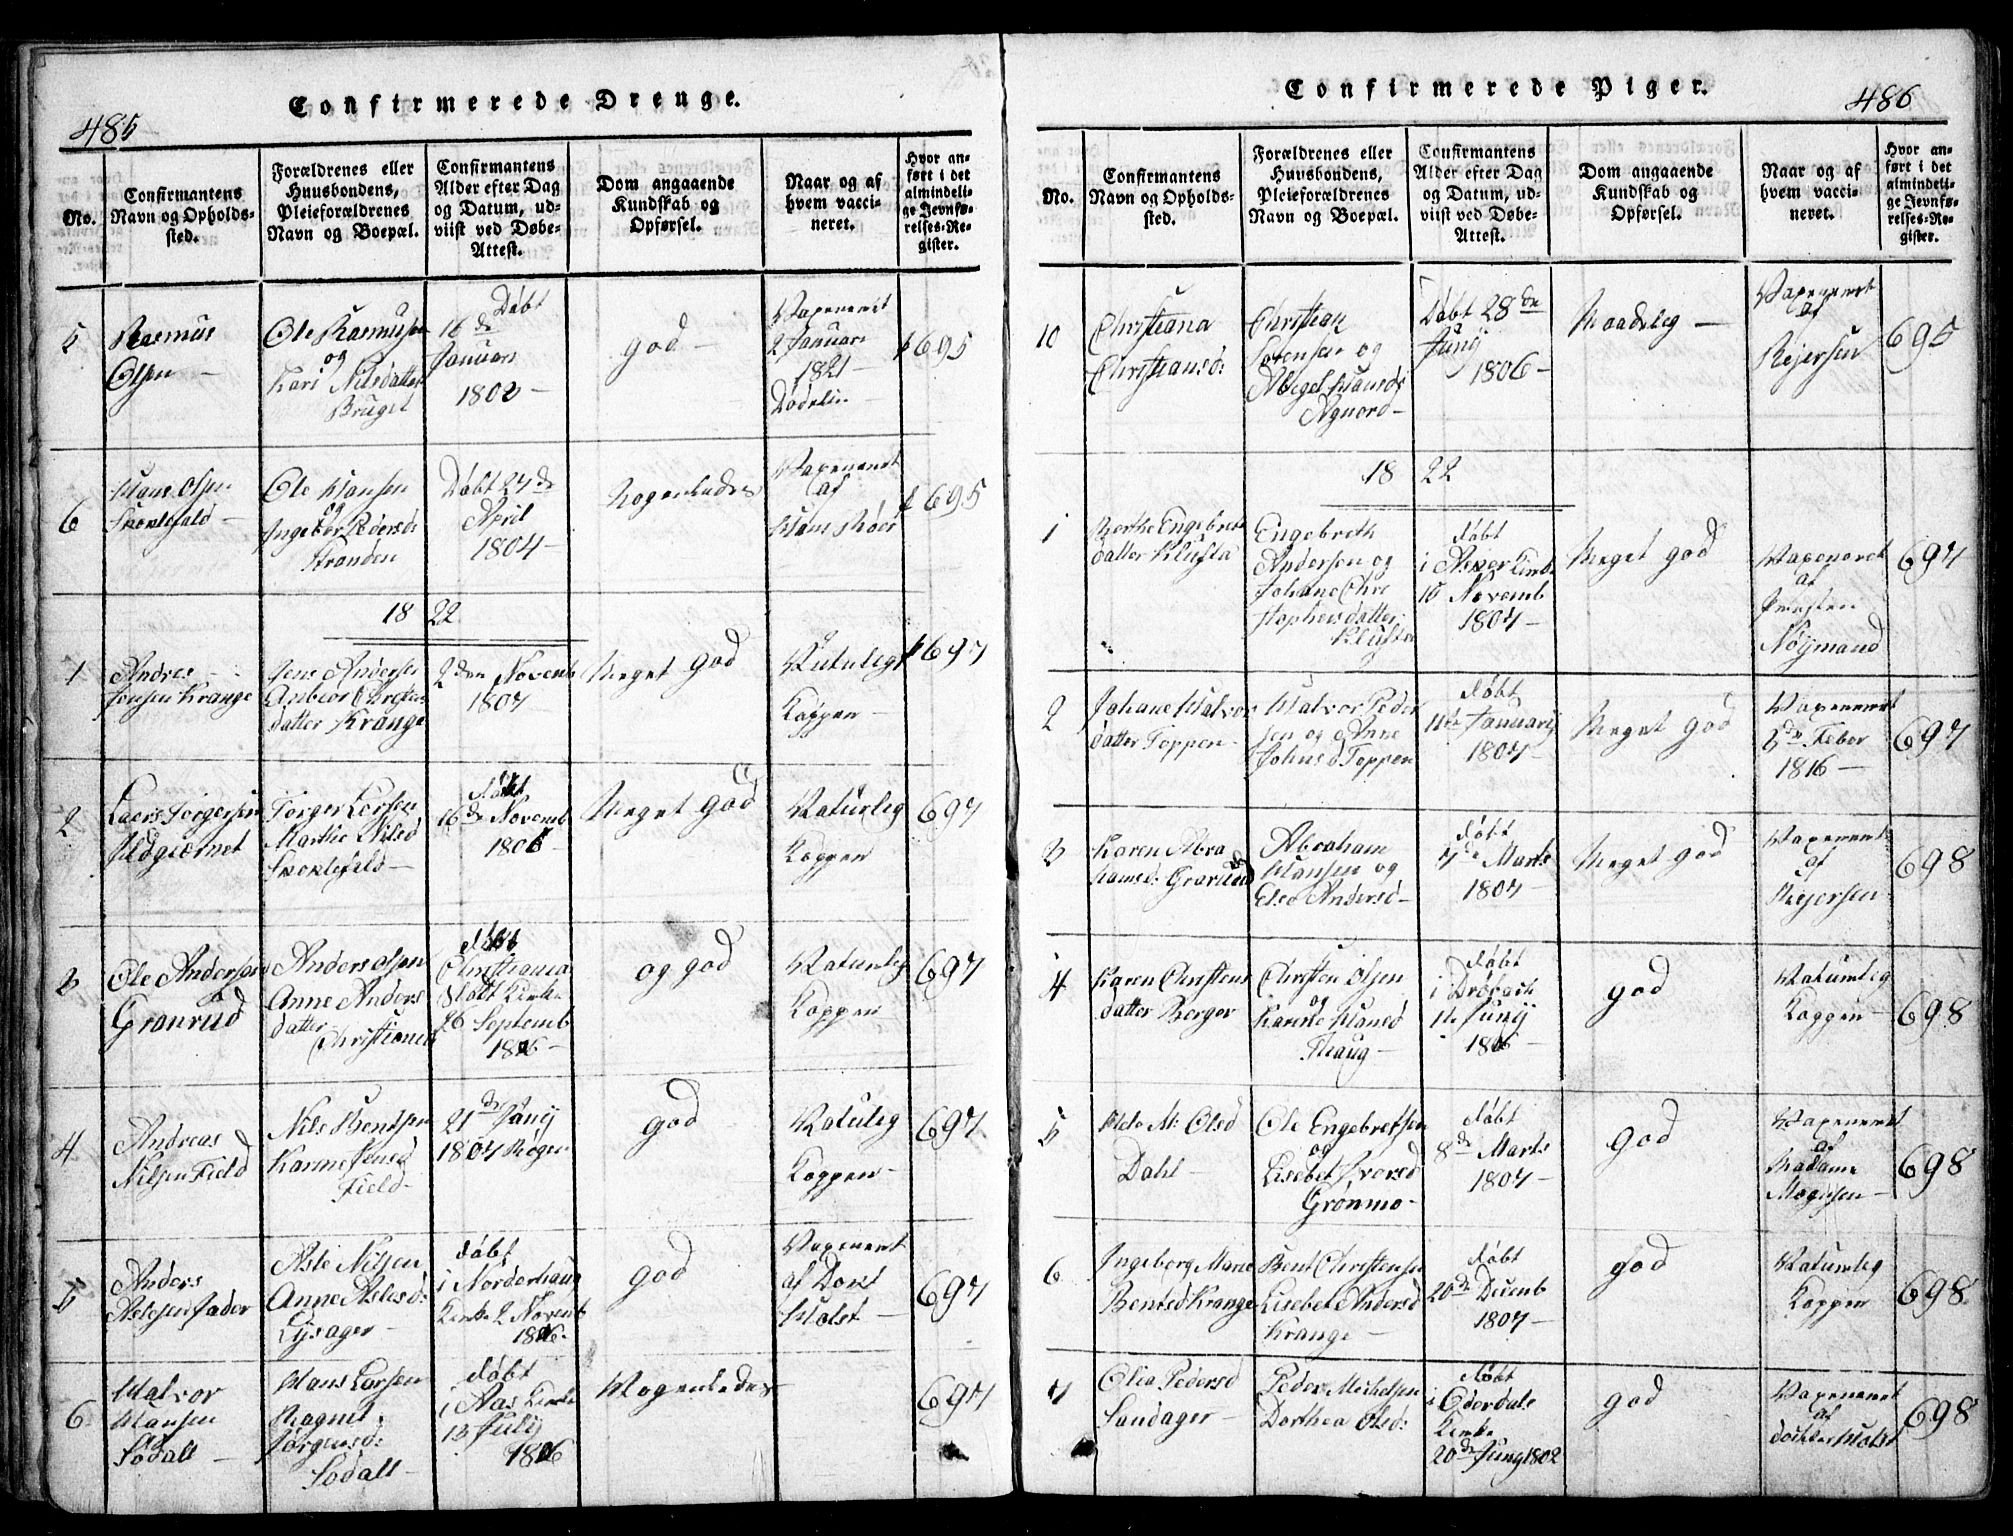 485
Confirmerede Drenge.
No.
Confirmantens
Navn og Opholds-
sted.
Forældrenes eller
Huusbondens,
Pleieforældrenes
Navn og Boepæl.
Confirmantens
Alder efter Dag
og Datum, ud-
viist ved Døbe-
Attest.
Dom angaaende
Kundskab og
Opførsel.
Naar og af
hvem vacci-
neret.
Hvor an-
ført i det
almindeli-
ge Jevnfø-
relses-Re-
gister.
5
Rasmus
Olsen
Ole Rasmusen
og
Kari Nilsdatter
Bruget
Døbt
16 de
Januari
1802
god
Vaxeneret
2 Januari
1821
695
6
Hans Olsen
Skoklefald
Ole Hansen
og
Ingebor Pedersd:
Stranden
Døbt 24 de
April
1804
Nogenledes
Vaxeneret
af
Hans Møer
695
18 22
1
Andres
Jensen Krange
Jens Andersen
Anbior Christens
datter Krange
2 den Novemb
1807
Meget god
Naturlig
Kopper
697
2
Laers Torgersen
Torger Larsen
Marthe Nilsd
Skoklefald
døbt
16 de Novemb
1806
Meget god
Naturlig
Kopper
697
3
Ole Andersen
Granrud
Anders Olsen
Anne Anders
datter
Christianea
døbt
Christiania
Slots Kirke
26 Septemb
1806
og god
Naturlig
Kopper
697
4
Andreas
Nilsen Field
Nils Bentsen
Karine Jensd
Field
21 de Junij
1807 Røgen
god
Naturlig
Kopper
697
5
Anders
Aslesen Jader
Asle Nilsen
Anne Aslesd:
Lysager
døbt
i Norderhaug
Kirke 2 Novemb
1806
god
Vaxeneret
af Dokt
Holst
697
6
Halvor
Hansen
Sødall
Hans Larsen
Ragnil
Jørgensd:
Sodall
døbt
i Aas Kirke
13 Julij
1806
Nogenledes
697
Confirmerede Piger.
486
No.
Confirmantens
Navn og Opholds-
sted.
Forældrenes eller
Huusbondens,
Pleieforældrenes
Navn og Boepæl.
Confirmantens
Alder efter Dag
og Datum, ud-
viist ved Døbe-
Attest.
Dom angaaende
Kundskab og
Opførsel.
Naar og af
hvem vacci-
neret.
Hvor an-
ført i det
almindeli-
ge Jevnfø-
relses-Re-
gister.
10
Christiana
Christiansd:
Christian
Sørensen og
Abegel Hansd
Agnord
Døbt 28 de
Junij
1806
Maadelig
Vaxeneret
af
Rejersen
695
18 22
1
Berthe Engebret
datter Klufta
Engebreth
Andersen og
Johane Chri
stophersdatter
Klufta
døbt
i Asker Kirke
15 Novemb
1807
Meget god
Vaxeneret
af
Presten
Nøijmand
697
2
Johane Halvor
datter Toppen
Halvor Peder
sen og Anne
Johnsd Toppen
døbt
11 de Januarij
1807
Meget god
Vaxeneret
3 de Feber
1816
697
3
Karen Abra
hamsd: Granlund
Abraham
Hansen og
Else Andersd
døbt
7 de Marts
1807
Meget god
Vaxeneret
af
Rejersen
698
4
Karen Christens
datter Berger
Christen Olsen
og
Karene Hansd
Thaug
døbt
i Drøbach
11 Junij
1806
god
Naturlig
Kopper
698
5
Helle M: Olsd
Dahl
Ole Engebretsen
og
Lisebet Iversd
Grønmo
døbt
8 de Marts
1807
god
Vaxeneret
af
Madame
Mognsen
698
6
Ingeborg Marie
Bentsd Krange
Bent Christensen
Lisebet Andersd
Krange
døbt
20 de Decemb
1807
god
Naturlig
Kopper
698
7
Olia Pedersd
Sandager
Peder Michelsen
Dorthea Olsd:
døbt
i Oderdale
Kirke
20 de Junij 1802
god
Vaxeneret
af
dockter Holst
698